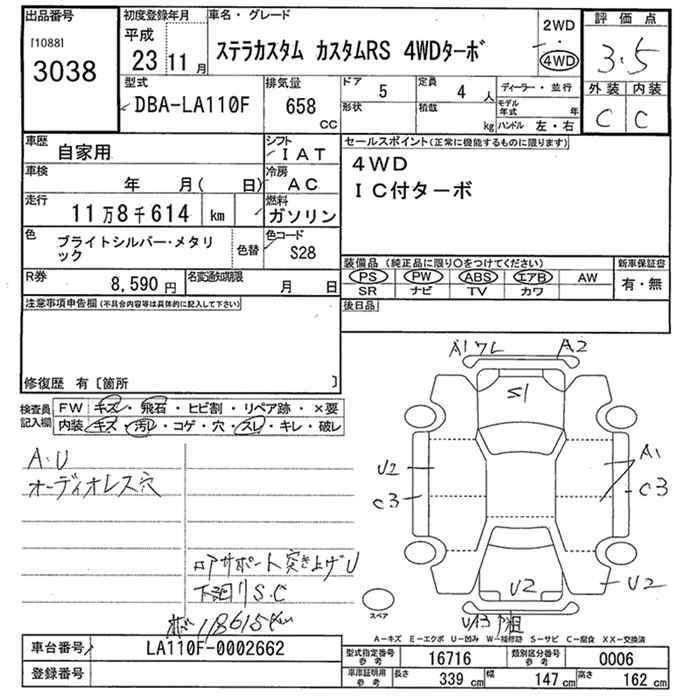 出品番号
[1088]
3038
初度登録年月
平成
23 11月
車名・グレード
ステラカスタム カスタムRS 4WDターボ
2WD
4WD
評価点
3.5
外装 内装
C C
型式
DBA-LA110F
排気量
658
CC
ドア 5
形状
定員 4人
積載 kg
ディーラー・並行
モデル年式 年
ハンドル 左・右
車歴
自家用
シフト
IAT
車検
年 月( 日)
冷房
AC
走行
11万8千614 km
燃料
ガソリン
色
ブライトシルバー・メタリック
色替
色コード
S28
R券
8,590円
名変通知期限
月 日
セールスポイント(正常に機能するものに限ります)
4WD
IC付ターボ
装備品(純正品に限り○をつけてください)
PS PW ABS エアB AW
SR ナビ TV カワ
新車保証書
有・無
後日品
注意事項申告欄(不具合内容等は具体的に記入して下さい)
修復歴 有〔箇所 〕
検査員記入欄
FW キズ・飛石・ヒビ割・リペア跡・×要
内装 キズ・汚レ・コゲ・穴・スレ・キレ・破レ
A・U
オーディオレス穴
ロアサポート突き上げU
下廻りS.C
118615km
A1ワレ A2
S1
U2
C3
A1
C3
U2
U2
スペア
A-キズ E-エクボ U-凹み W-補修跡 S-サビ C-腐食 XX-交換済
車台番号 LA110F-0002662
登録番号
型式指定番号参考 16716
類別区分番号参考 0006
車庫証明用参考 長さ 339cm 幅 147cm 高さ 162cm